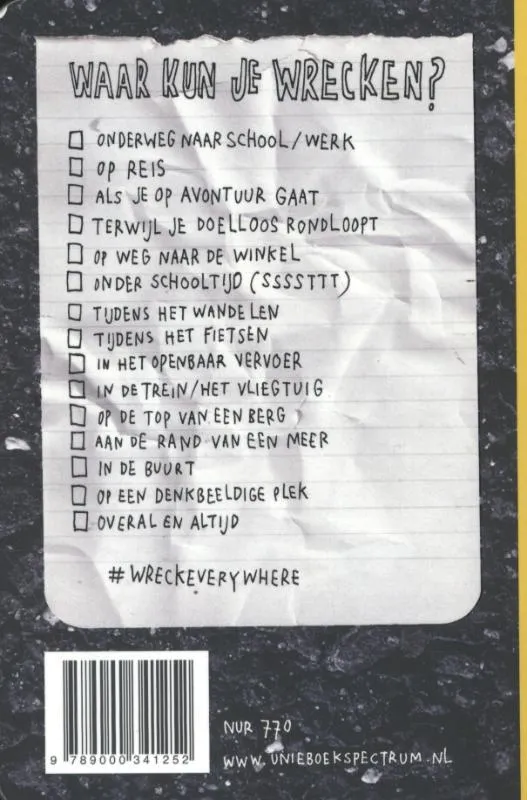 WAAR KUN JE WRECKEN?
ONDERWEG NAAR SCHOOL/WERK
OP REIS
ALS JE OP AVONTUUR GAAT
TERWIJL JE DOELLOOS RONDLOOPT
OP WEG NAAR DE WINKEL
ONDER SCHOOLTIJD (SSSSTTT)
TIJDENS HET WANDELEN
TIJDENS HET FIETSEN
IN HET OPENBAAR VERVOER
IN DE TREIN/HET VLIEGTUIG
OP DE TOP VAN EEN BERG
AAN DE RAND VAN EEN MEER
IN DE BUURT
OP EEN DENKBEELDIGE PLEK
OVERAL EN ALTIJD
#WRECKEVERYWHERE
NUR 770
WWW.UNIEBOEKSPECTRUM.NL
9 789000 341252